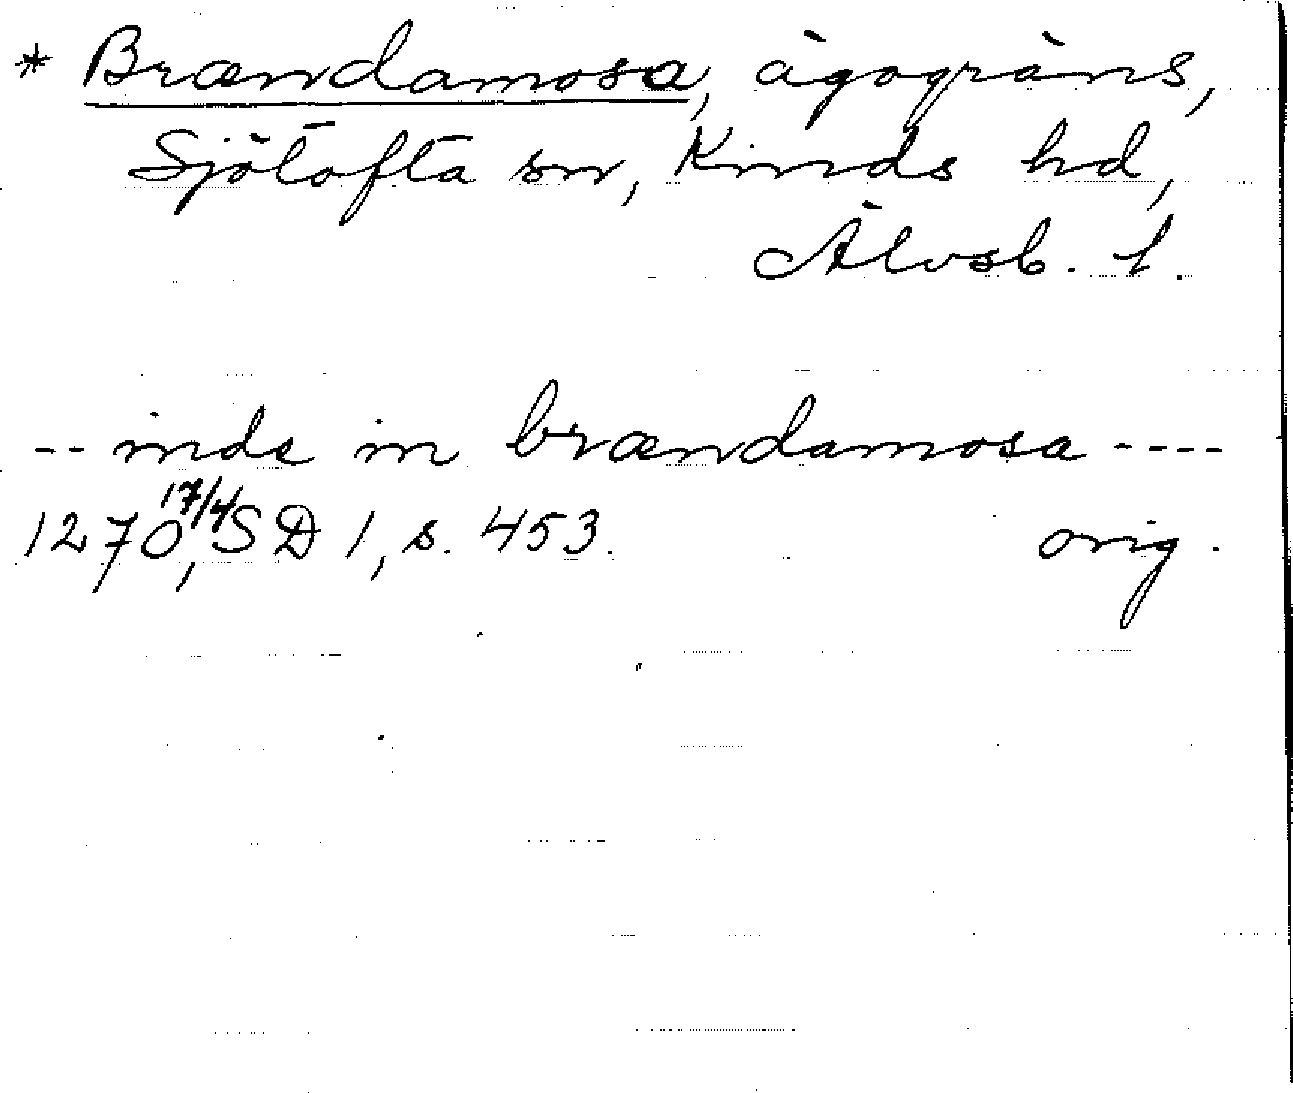 * Brændamosa, ägogräns,
Sjötofta sn, Kinds hd,
Älvsb. l.
-- inde in brændamosa ----
1270 17/4, SD 1, s. 453. orig.